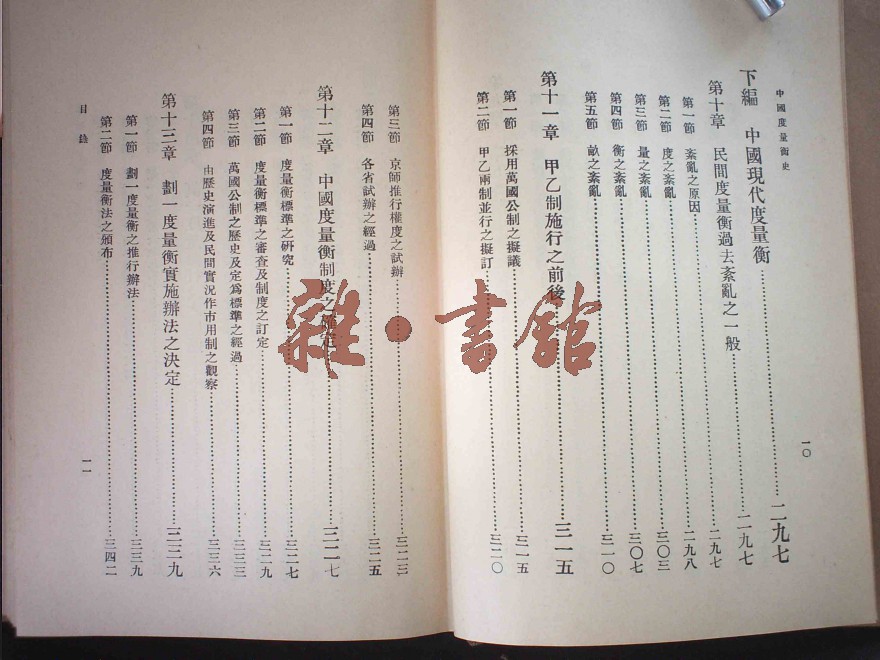 中國度量衡史
一〇
下編　中國現代度量衡……二九七
第十章　民間度量衡過去紊亂之一般……二九七
第一節　紊亂之原因……二九七
第二節　度之紊亂……二九八
第三節　量之紊亂……三〇三
第四節　衡之紊亂……三〇七
第五節　畝之紊亂……三一〇
第十一章　甲乙制施行之前後……三一五
第一節　採用萬國公制之擬議……三一五
第二節　甲乙兩制並行之擬訂……三二〇
第三節　京師推行權度之試辦……三二三
第四節　各省試辦之經過……三二五
第十二章　中國度量衡制度之確定……三二七
第一節　度量衡標準之研究……三二七
第二節　度量衡標準之審查及制度之訂定……三二九
第三節　萬國公制之歷史及定爲標準之經過……三三三
第四節　由歷史演進及民間實況作市用制之觀察……三三六
第十三章　劃一度量衡實施辦法之決定……三三九
第一節　劃一度量衡之推行辦法……三三九
第二節　度量衡法之頒布……三四二
目錄
一一
雜·書館